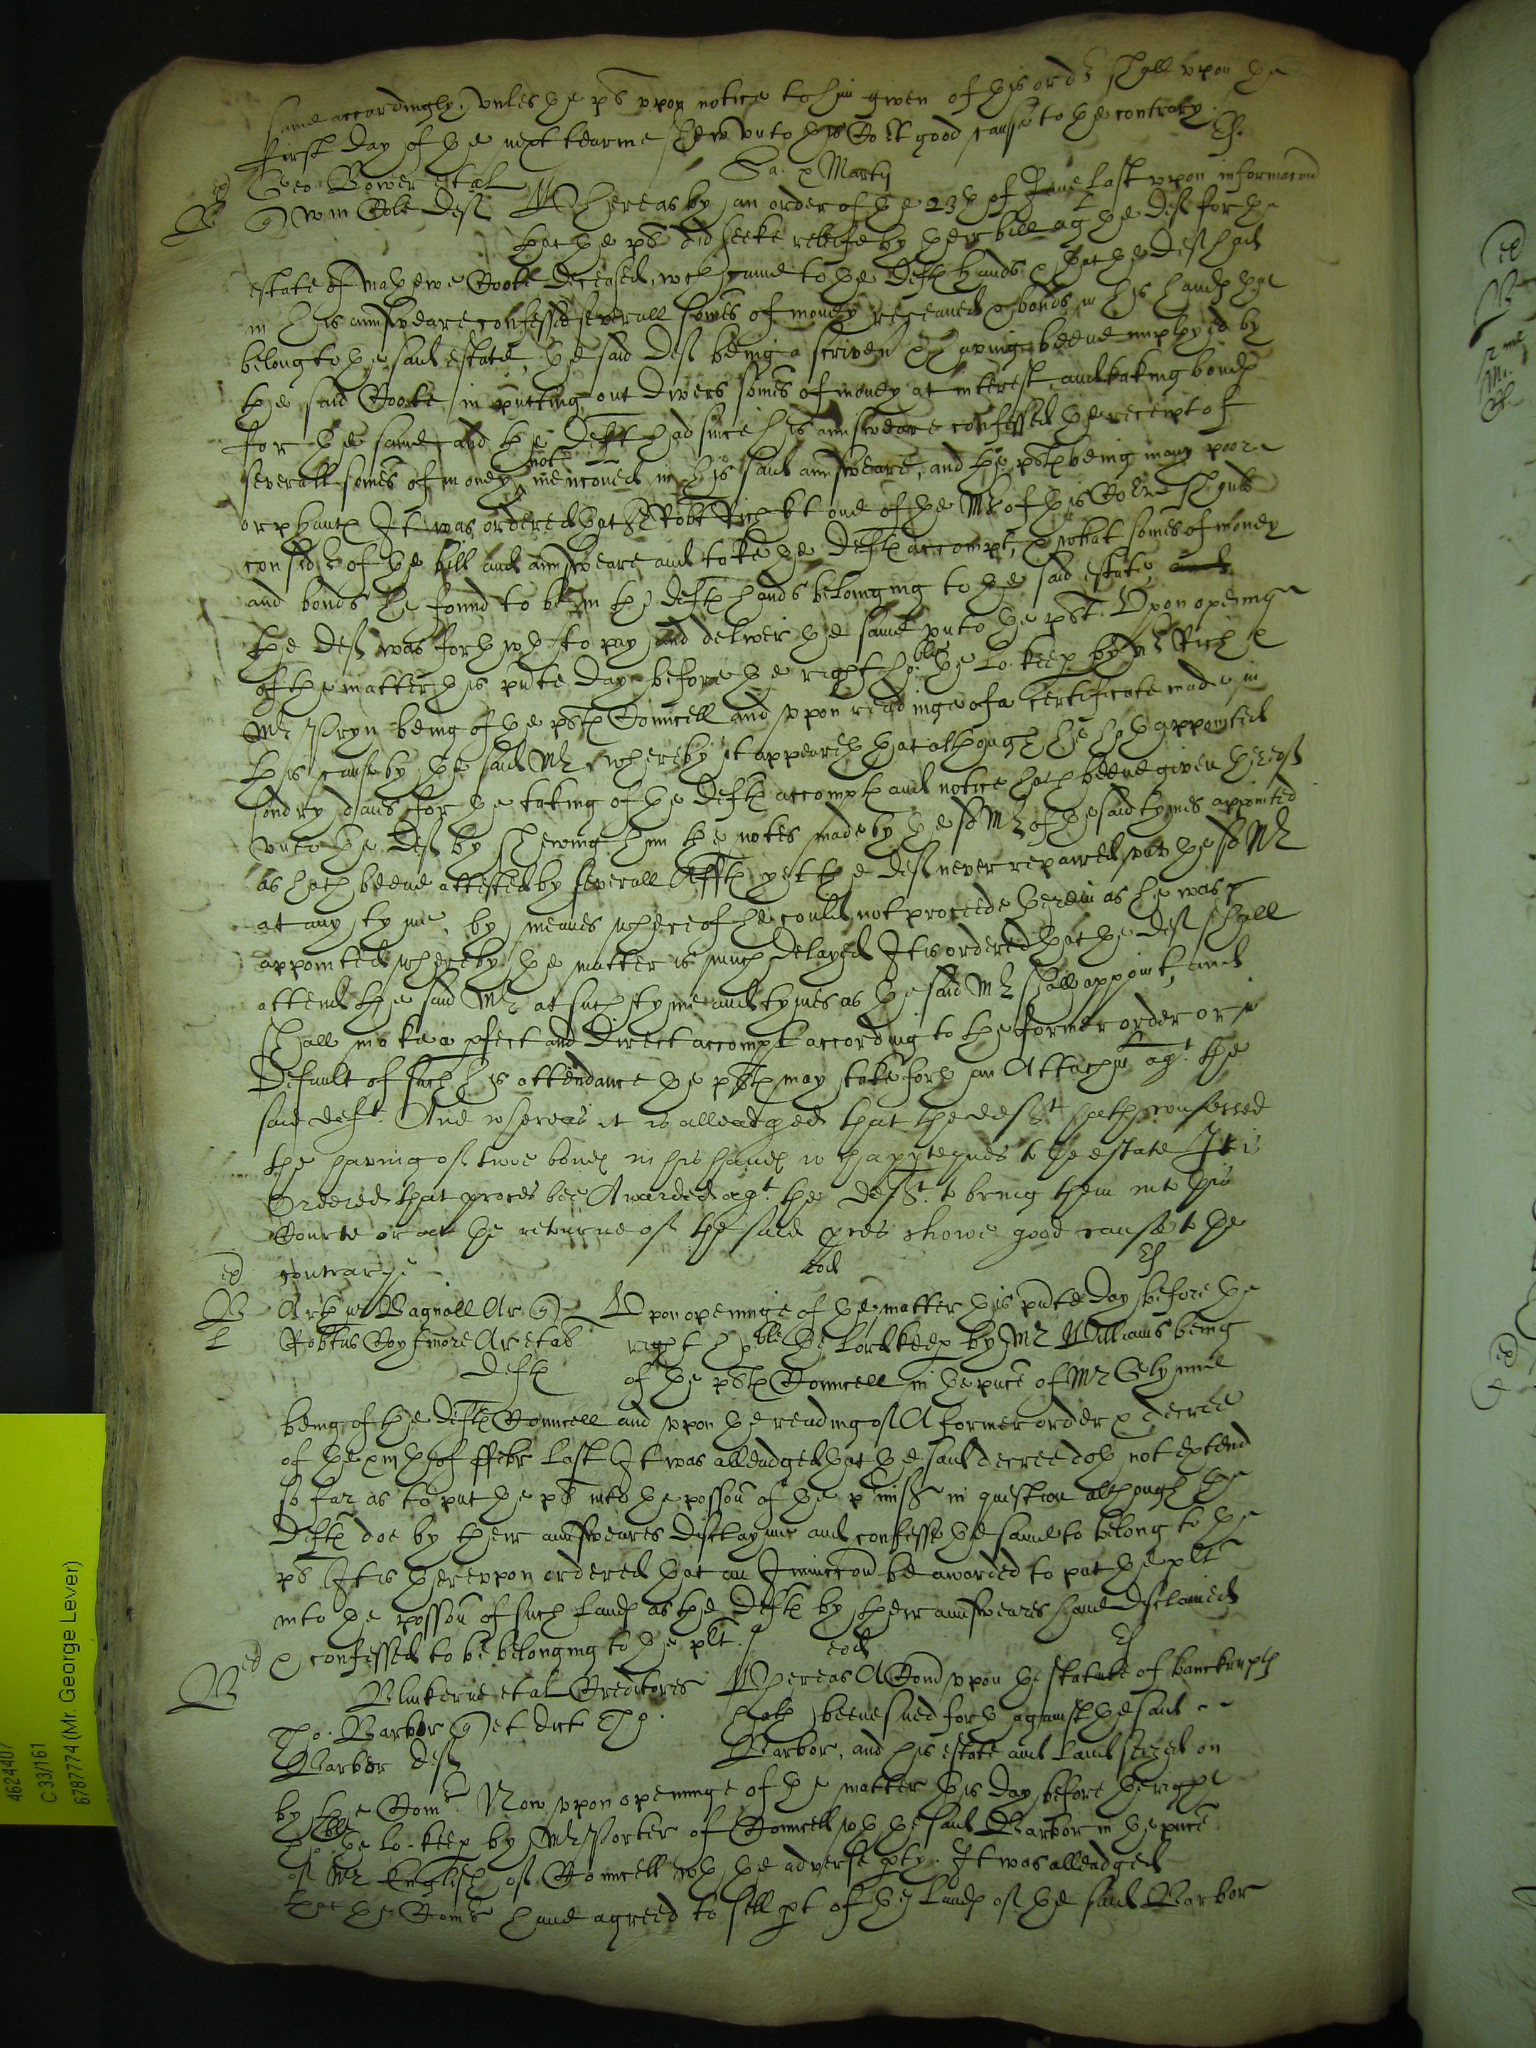 same accordingly, vnles the pl vpon notice to him given of this ordr shall vpon the
first day of the next tearme shew vnto this Cort good cause to the contrary.
Sa. x Martij
ex Geo: Bower et al
B Qr Wm Cole deft Whereas by an order of the 23th of June last vpon informacon
that the pls did seeke releife by their bill agt the deft for the
estate of Mathewe Cooke deceased, wch came to the defts hands & that the deft had
in his annsweare confessed severall somes of money receaued & bonds in his hands that
belong to the said estate, the said deft being a scrivenr & having beene imployed by
the said Cooke in putting out divers somes of money at interest and taking bonds
for the same, and the deft had since his annsweare confessed the receipt of
severall somes of money not mencioned in his said annsweare, and the plts being many poore
orphants It was ordered that Sr Robt Rich kt one of the Mrs of this Corte should
considr of the bill and annsweare and take the defts accompt, & what somes of money
and bonds he found to be in the defts hands belonging to the said estate
the deft was forthwth to pay and deliver the same vnto the plts. Vpon openinge
of the matter this pnte day before the right ho:ble the lo: keepr by Mr Rich &
Mr Pryn being of the plts Councell and vpon readinge of a certificate made in
this cause by the said Mr whereby it appeareth that although he hath appointed
sondry daies for the taking of the defts accompts and notice hath beene given thereof
vnto the deft by shewing him the notes made by the sd Mr of the said tymes appointed
as hath beene attested by severall Affts yet the deft never repaired vnto the sd Mr
at any tyme, by meanes whereof he could not proceede therein as he was
appointed whereby the matter is much delayed It is ordered that the deft shall
attend the said Mr at such tyme and tymes as the said Mr shall appoint, and
shall make a pfect and direct accompt according to the former order or in
default of such his attendance the plts may take forth an Attachmt agt the
said deft. And whereas it is alleadged that the deft hath confessed
the having of twoe bonds in his hands wch apperteynes to the estate It is
Ordered that proces bee Awarded agt the deft to bring them into this
Courte or at the returne of the said pces showe good cause to the
contrarye
eod
ex
B Arthur Bagnall Ar Qr Vpon openinge of the matter this pnte day before the
L Robtus ar et al right ho:ble the Lord keepr by Mr Williams being
defts of the plts Councell in the pnce of Mr Glynne
being of the defts Councell and vpon the reading of A former order & decree
of the xiijth of ffebr last It was alleadged that the said decree doth not extend
so far as to put the pls into the possion of the pmiss in question although the
defts doe by their annsweares disclayme and confesse the same to belong to the
pls It is therevpon ordered that an Iniunccion be awarded to put the plts
into the possion of such lands as the defts by their annsweares haue disclaimed
& confessed to be belonging to the plt.
eod
ex
B et al Creditores Whereas A Comn vpon the statute of banckrupts
Tho: Barbor Qr et dict Tho: hath beene sued forth against the said
Barbor deft Barbor, and his estate and land seized on
by the Comrs Now vpon openinge of the matter this day before the right
ho:ble the lo: keepr by Mr Porter of Councell wth the said Barbor in the pnce
of Mr English of Councell wth the adverse pty. It was alleadged
that the Comrs haue agreed to sell pt of the lands of the said Barbor
4624407
C 33/161
6787774 (Mr. George Lever)